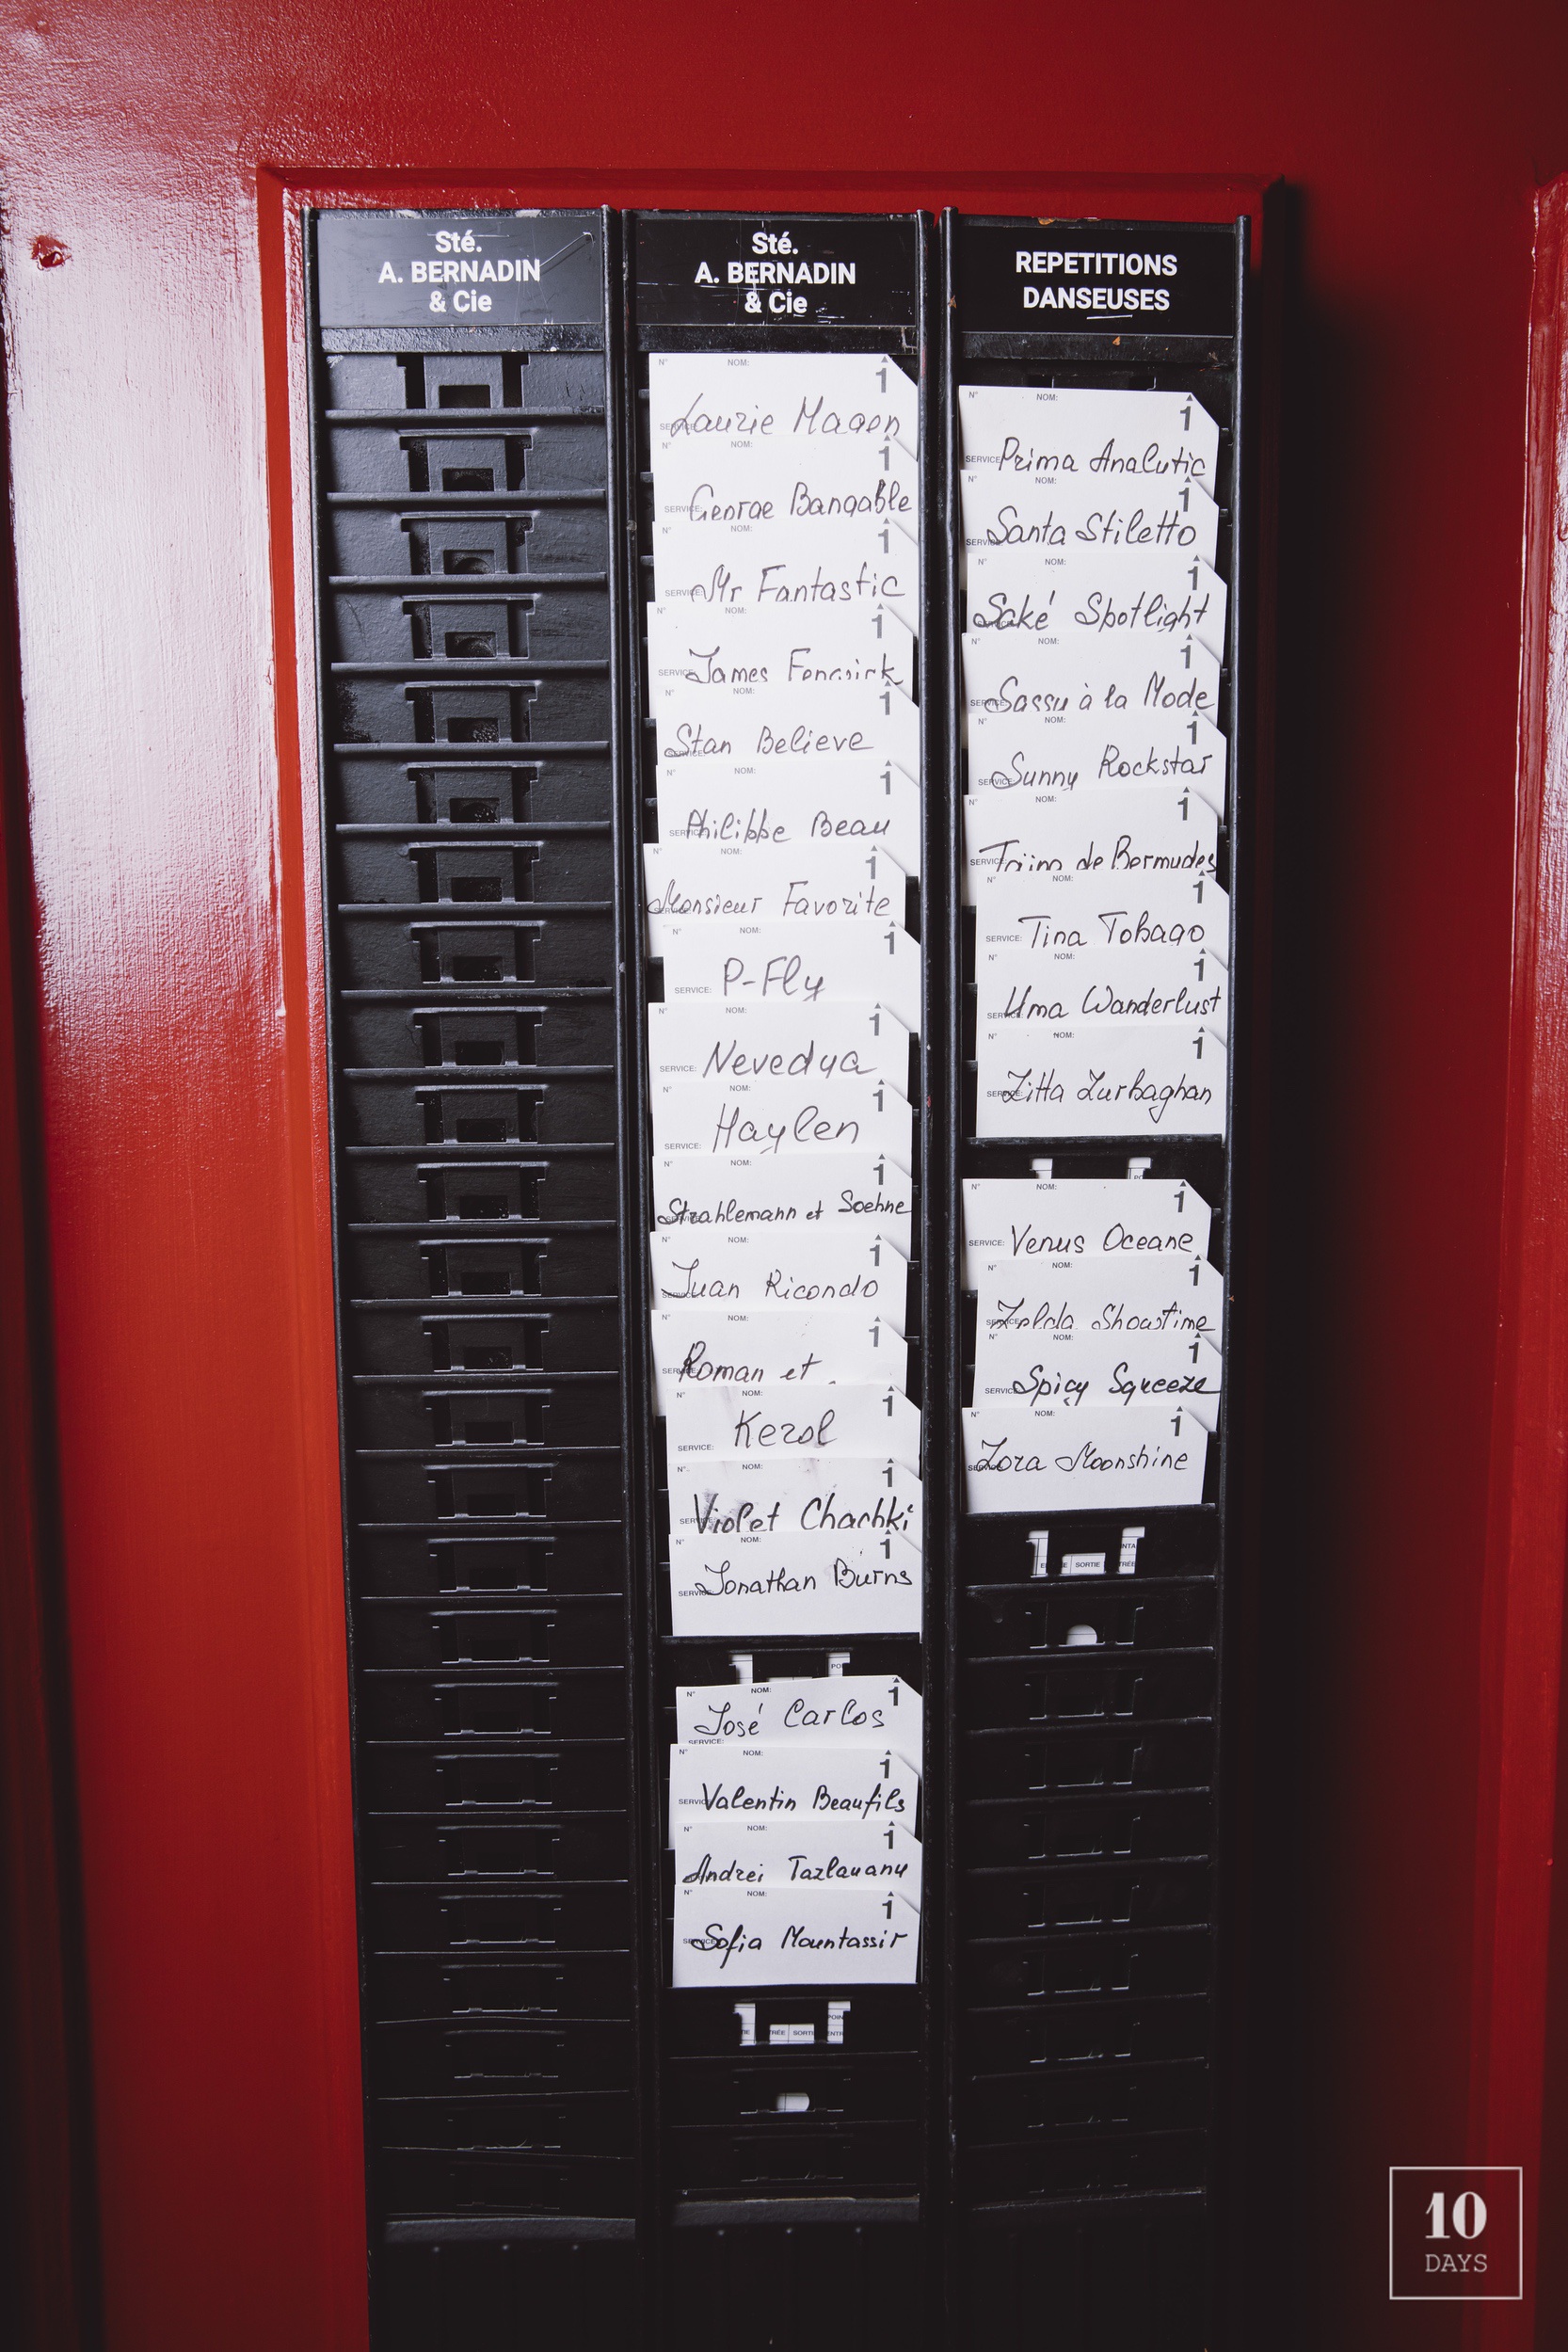 Sté.
A. BERNADIN
& Cie
Sté.
A. BERNADIN
& Cie
N° NOM: 1
SERVICE: Laurie Hagen
NOM: 1
SERVICE: George Bangable
N° NOM: 1
SERVICE: Mr Fantastic
N° NOM: 1
SERVICE: James
N° NOM: 1
SERVICE: Stan Believe
N° NOM: 1
SERVICE: Philippe Beau
N° NOM: 1
SERVICE: Monsieur Favorite
N° NOM: 1
SERVICE: P-Fly
N° NOM: 1
SERVICE: Nevedya
N° NOM: 1
SERVICE: Haylen
N° NOM: 1
SERVICE: Strahlemann et Soehne
N° NOM: 1
SERVICE: Juan Ricondo
N° NOM: 1
SERVICE: Roman et
N° NOM: 1
SERVICE: Kerol
N° NOM: 1
SERVICE: Violet Chachki
N° NOM: 1
SERVICE: Jonathan Burns
N° NOM: 1
José Carlos
SERVICE:
N° NOM: 1
SERVICE: Valentin Beaufils
N° NOM: 1
Andrei Tazlauanu
N° NOM: 1
SERVICE: Sofia Mountassir
REPETITIONS
DANSEUSES
N° NOM: 1
SERVICE: Prima Analytic
N° NOM: 1
SERVICE: Santa Stiletto
N° NOM: 1
SERVICE: Saké Spotlight
N° NOM: 1
SERVICE: Sassy à la Mode
N° NOM: 1
SERVICE: Sunny Rockstar
N° NOM: 1
SERVICE: de Bermudes
N° NOM: 1
SERVICE: Tina Tobago
N° NOM: 1
SERVICE: Uma Wanderlust
N° NOM: 1
SERVICE: Zitta Zurbaghan
N° NOM: 1
SERVICE: Venus Oceane
N° NOM: 1
SERVICE: Zelda Showtime
N° NOM: 1
SERVICE: Spicy Squeeze
N° NOM: 1
SERVICE: Zora Moonshine
SORTIE
10
DAYS